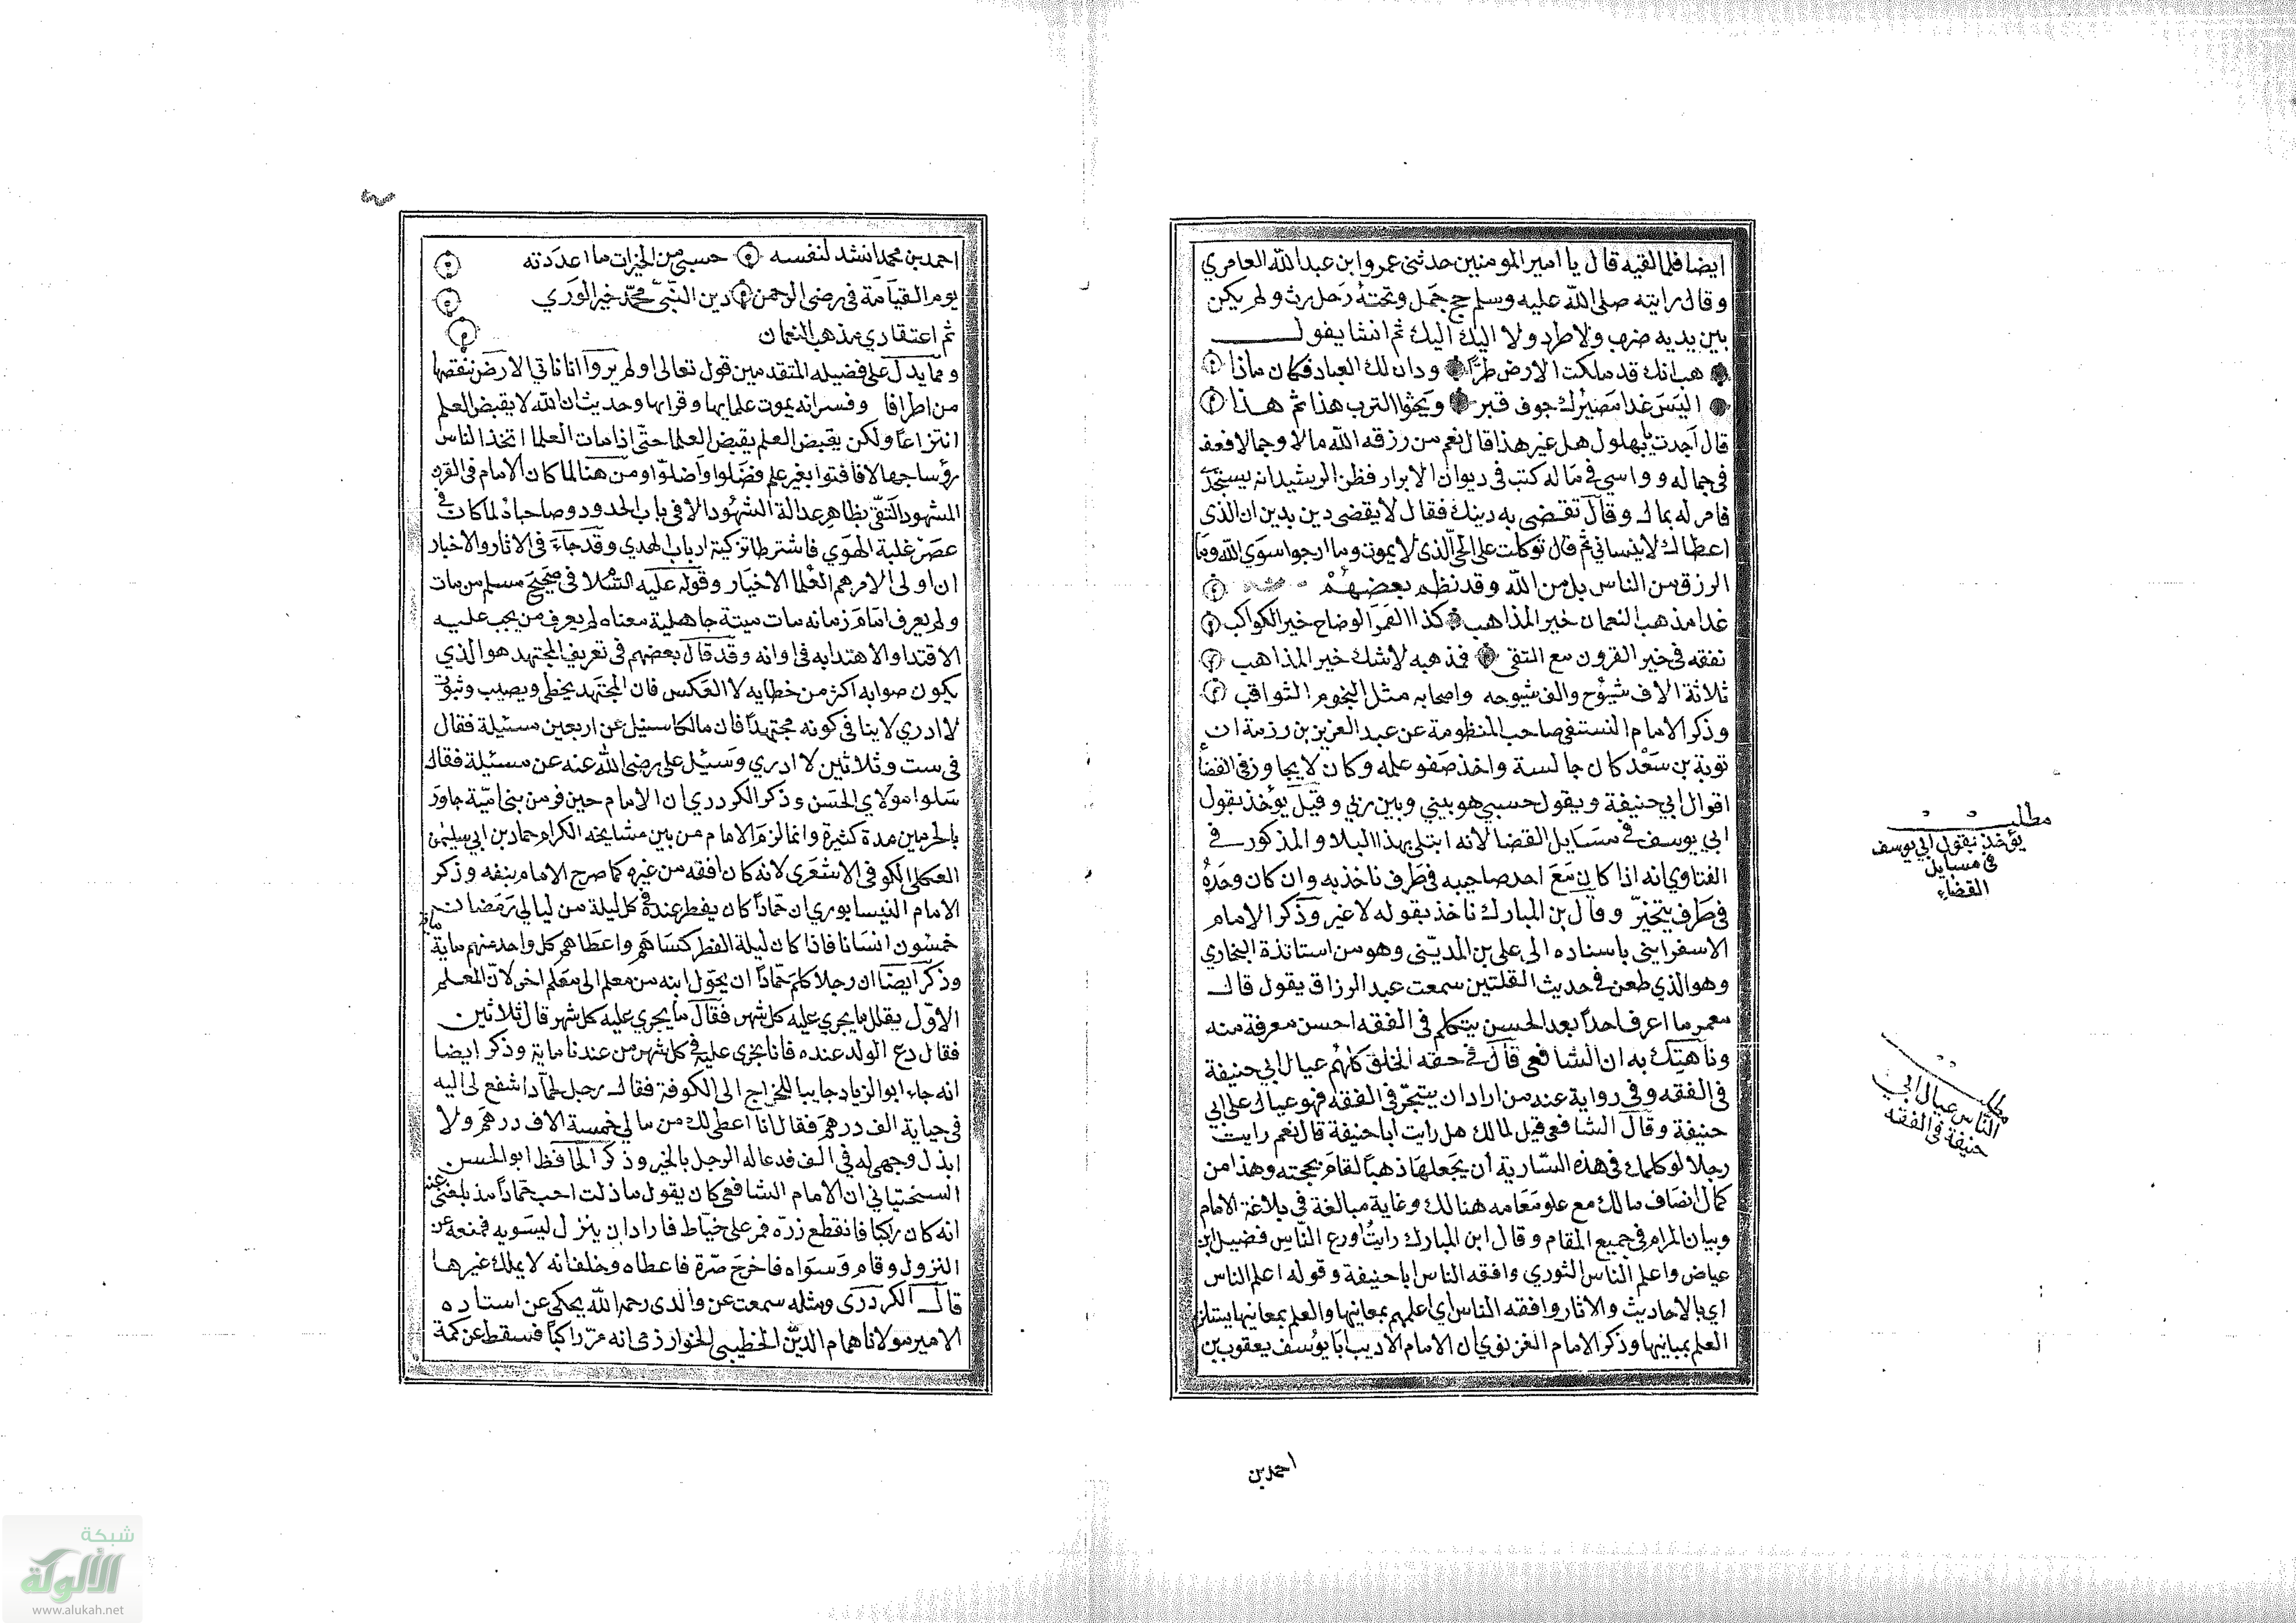 ايضا فلما لقيه قال يا امير المومنين حدثنى عمرو ابن عبد الله العامري
وقال رايته صلى الله عليه وسلم حج جمل وتحته رحل رث ولم يكن
بين يديه ضرب ولا طرد ولا اليك اليك ثم انشا يقول
هب انك قد ملكت الارض طرًا ودان لك العباد فكان ماذا
اليس غدا مصيرك جوف قبر ويحثوا الترب هذا ثم هذا
قال اجدت يا بهلول هل غير هذا قال نعم من رزقه الله مالا وجمالا فعف
فى جماله وواسي في ماله كتب فى ديوان الابرار فظن الرشيد انه يستجد
فامر له بمال وقال تقضى به دينك فقال لا يقضى دين بدين ان الذى
اعطاك لا ينساني ثم قال توكلت على الحي الذى لا يموت وما ارجوا سوى الله وما
الرزق من الناس بل من الله وقد نظم بعضهم
غدا مذهب النعمان خير المذاهب كذا القمر الوضاح خير الكواكب
تفقه فى خير القرون مع التقى فمذهبه لا شك خير المذاهب
ثلاثة الاف شيوخ والف شيوخه واصحابه مثل النجوم الثواقب
وذكر الامام النسفى صاحب المنظومة عن عبد العزيز بن رزمة ان
توبة بن سعد كان جالسه واخذ صفو علمه وكان لا يجاوز فى القضا
اقوال ابي حنيفة ويقول حسبي هو بيني وبين ربي وقيل يؤخذ بقول
ابي يوسف في مسايل القضا لانه ابتلى بهذا البلا والمذكور في
الفتاوي انه اذا كان مع احد صاحبيه فى طرف ناخذ به وان كان وحده
فى طرف يتخير وقال بن المبارك ناخذ بقوله لا غير وذكر الامام
الاسفرايني باسناده الى على بن المديني وهو من استاتذة البخاري
وهو الذي طعن فى حديث القلتين سمعت عبد الرزاق يقول قال
معمر ما اعرف احداً بعد الحسن يتكلم فى الفقه احسن معرفة منه
وناهيك به ان الشافعى قال في حقه الخلق كلهم عيال ابي حنيفة
فى الفقه وفى رواية عنه من اراد ان يتبحّر فى الفقه فهو عيال على ابي
حنيفة وقال الشافعى قيل لمالك هل رايت ابا حنيفة قال نعم رايت
رجلا لو كلمك فى هذه السارية ان يجعلها ذهباً لقام بحجته وهذا من
كمال انصاف مالك مع علو مقامه هنالك وغاية مبالغة فى بلاغة الامام
وبيان المرام فى جميع المقام وقال ابن المبارك رايت اورع الناس فضيل ابن
عياض واعلم الناس الثوري وافقه الناس ابا حنيفة وقوله اعلم الناس
اي بالاحاديث والاثار وافقه الناس اي اعلمهم بمعانيها والعلم بمعانيها يستلزم
العلم بمبانيها وذكر الامام الغزنوي ان الامام الاديب ابا يوسف يعقوب بن
احمد بن
مطلب
يؤخذ بقول ابي يوسف
فى مسايل
القضاء
مطلب
الناس عيال ابي
حنيفة فى الفقه
احمد بن محمد انشد لنفسه حسبي من الخيرات ما اعددته
يوم القيامة فى رضى الرحمن دين النبي محمد خير الوري
ثم اعتقادي مذهب النعمان
ومما يدل على فضيله المتقدمين قول تعالى اولم يروا انا ناتي الارض ننقصها
من اطرافا وفسر انه يموت علمايها وقرايها وحديث ان الله لا يقبض العلم
انتزاعاً ولكن يقبض العلم بقبض العلما حتى اذا مات العلما اتخذ الناس
رؤسا جهالا فافتوا بغير علم فضلوا واضلوا ومن هنا لما كان الامام فى القرن
المشهود التقى بظاهر عدالة الشهود الا فى باب الحدود وصاحباه لما كانا في
عصر غلبة الهوي فاشترطا تزكية ارباب الهدي وقد جاء فى الاثار والاخبار
ان اولى الامر هم العلما الاخيار وقوله عليه السلا فى صحيح مسلم من مات
ولم يعرف امام زمانه مات ميتة جاهلية معناه لم يعرف من يجب عليه
الاقتدا والاهتدا به فى اوانه وقد قال بعضهم فى تعريف المجتهد هو الذي
يكون صوابه اكثر من خطايه لا العكس فان المجتهد يخطى ويصيب وثبوت
لا ادري لا ينافى كونه مجتهداً فان مالكا سئيل عن اربعين مسئيلة فقال
فى ست وثلاثين لا ادري وسئيل على رضى الله عنه عن مسئيلة فقال
سلوا مولاي الحسن وذكر الكردري ان الامام حين فر من بنى امية جاور
بالحرمين مدة كثيرة وانما لزم الامام من بين مشايخه الكرام حماد بن ابي سليمن
العكلى الكوفى الاشعرى لانه كان افقه من غيره كما صرح الامام بنفه وذكر
الامام النيسابوري ان حماداً كان يفطر عنده فى كل ليلة من ليالي رمضان
خمسون انسانا فاذا كان ليلة الفطر كساهم واعطاهم كل واحد منهم ماية
وذكر ايضا ان رجلا كلم حماداً ان يحول ابنه من معلم الى معلم اخر لان المعلم
الاول يقلل ما يجري عليه كل شهر فقال ما يجري عليه كل شهر قال ثلاثين
فقال دع الولد عنده فانا نجرى عليه فى كل شهر من عندنا ماية وذكر ايضا
انه جاء ابو الزياد جابيا للخراج الى الكوفة فقال رجل لحماد اشفع لى اليه
فى جباية الف درهم فقال انا اعطى لك من مالي خمسة الاف درهم ولا
ابذل وجهى له في الف فدعا له الرجل بالخير وذكر الحافظ ابو الحسن
السختياني ان الامام الشافعي كان يقول ما ذلت احب حماداً مذ بلغنى عنه
انه كان راكبا فانقطع زره فمر على خياط فاراد ان ينزل ليسويه فمنعه عن
النزول وقام وسواه فاخرج صرة فاعطاه وحلف انه لا يملك غيرها
قال الكردرى ومثله سمعت عن والدى رحمه الله يحكى عن استاده
الامير مولانا همام الدين الخطيبى الخوارزمى انه مر راكبا فسقط عن كمة
شبكة
الألوكة
www.alukah.net